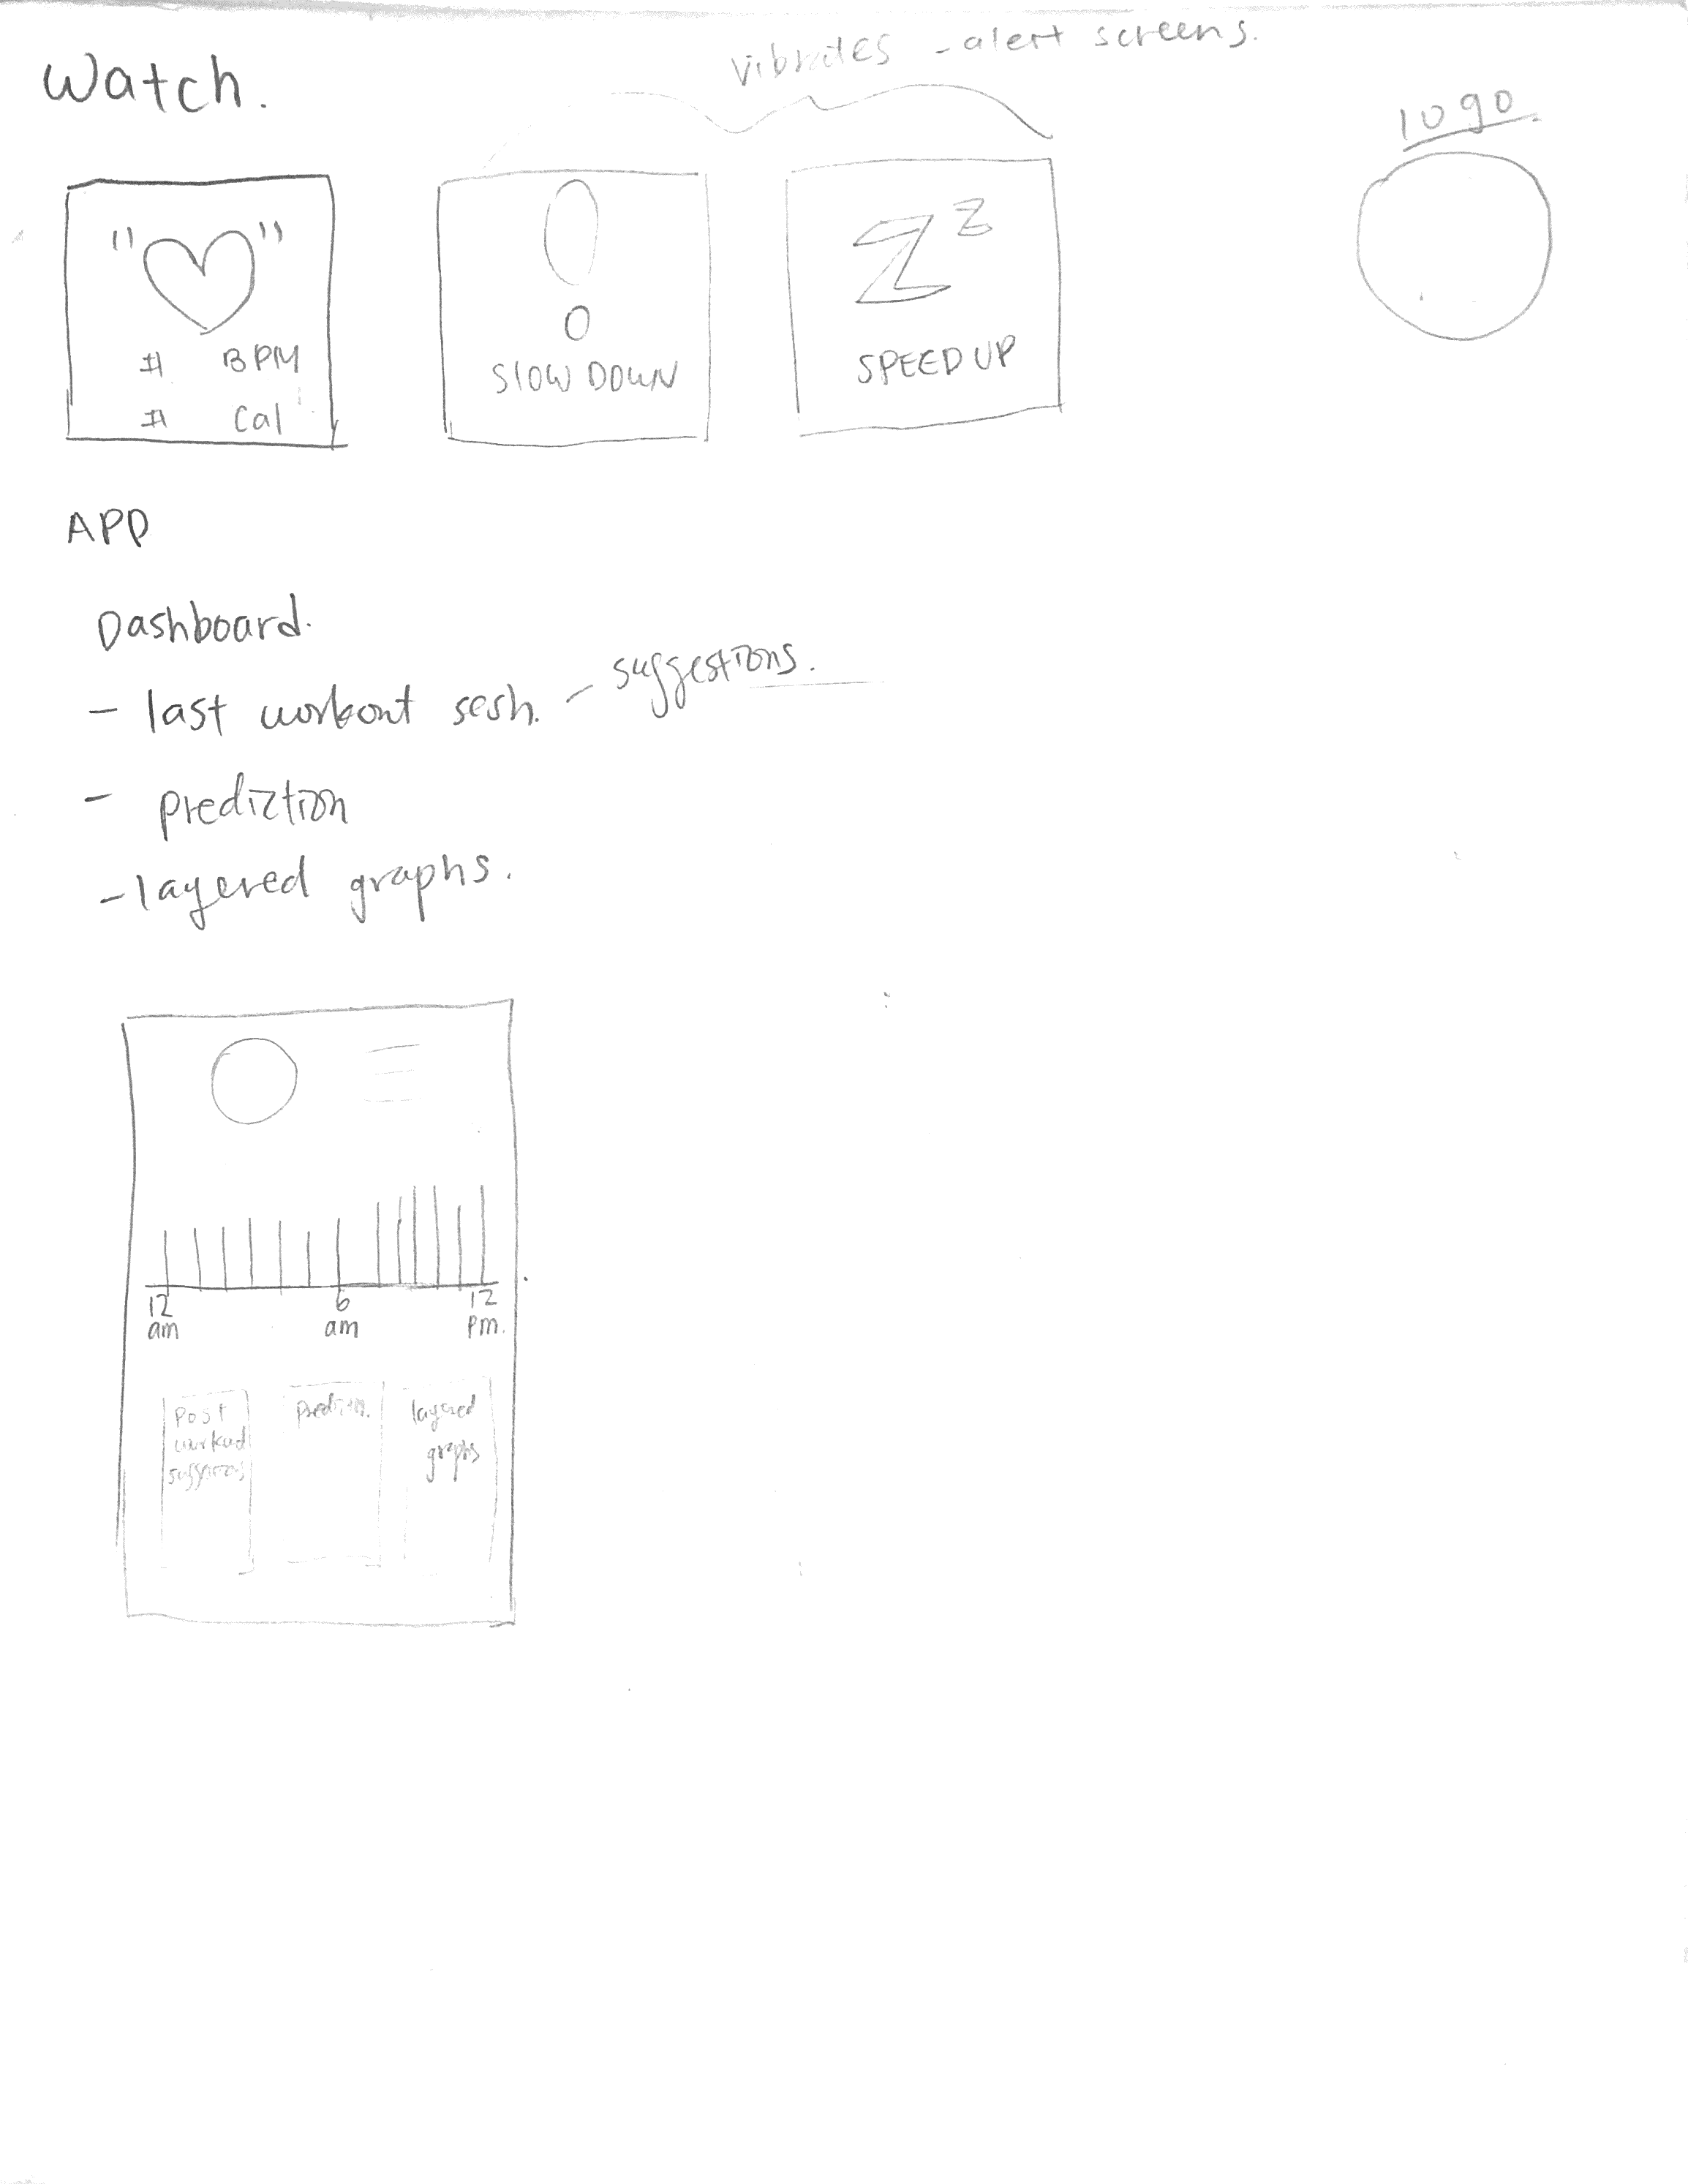 Watch.
vibrates - alert screens.
logo
# BPM
# Cal
SLOW DOWN
Z Z
SPEED UP
APP
Dashboard.
- last workout sesh. - suggestions.
- prediction
- layered graphs.
12 am
6 am
12 pm.
Post workout suggestions
predictions.
layered graphs